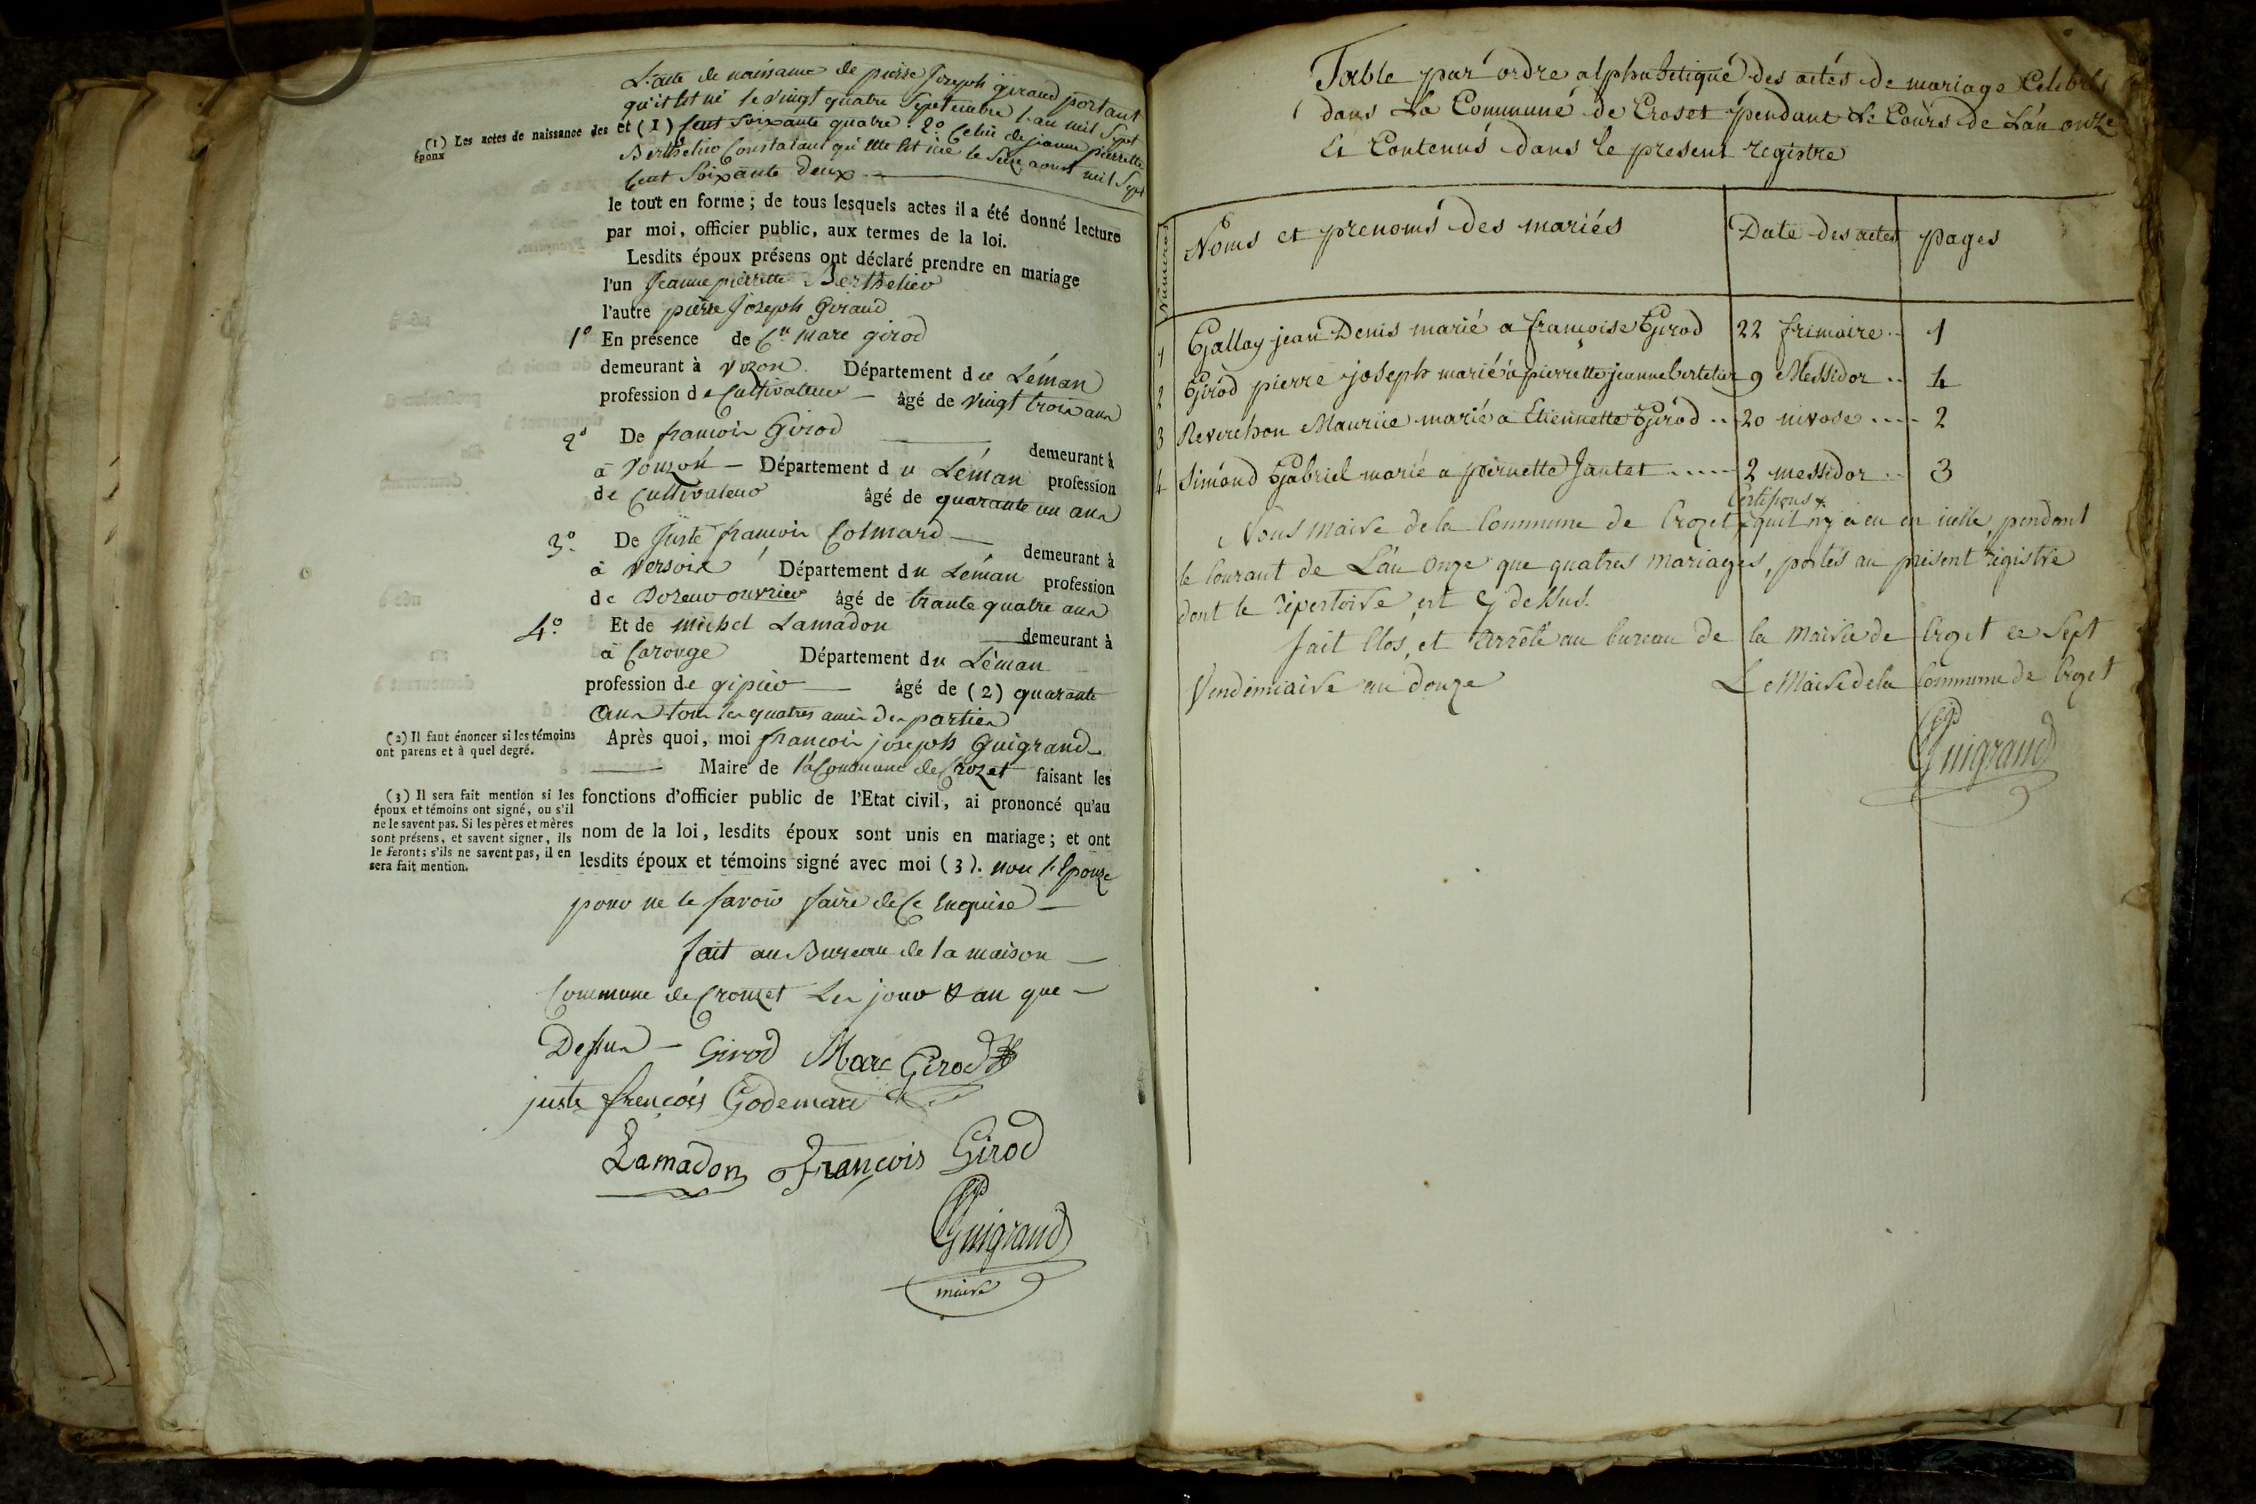 L'acte de naissance de pierre Joseph giraud portant
qu'il est né le vingt quatre Septembre l'an mil Sept
(1) Les actes de naissance des époux
et (1) Cent Soixante quatre. 2.º Celui de jeanne pierrette
Berthelier Constatant qu'elle est née le Seize aoust mil Sept
Cent Soixante Deux
le tout en forme; de tous lesquels actes il a été donné lecture
par moi, officier public, aux termes de la loi.
Lesdits époux présens ont déclaré prendre en mariage
l'un Jeanne pierrette Berthelier
l'autre pierre Joseph Giraud
1º En présence de Cn marc girod
demeurant à vozon. Département du Léman
profession de Cultivateur âgé de vingt trois ans
2º De françois Girod demeurant à
à vouzon Département du Léman profession
de Cultivateur âgé de quarante un ans
3º De Juste françois Cotmard demeurant à
à versoix Département du Léman profession
de Doreur ouvrier âgé de trante quatre ans
4º Et de michel Lamadon demeurant à
à Carouge Département du Léman
profession de gipier âgé de (2) quarante
ans tous les quatres amis des parties
(2) Il faut énoncer si les témoins
ont parens et à quel degré.
Après quoi, moi françois joseph Guigrand
Maire de la Commune de Crozet faisant les
fonctions d'officier public de l'Etat civil, ai prononcé qu'au
nom de la loi, lesdits époux sont unis en mariage; et ont
lesdits époux et témoins signé avec moi (3). non l'Epouze
(3) Il sera fait mention si les
époux et témoins ont signé, ou s'il
ne le savent pas. Si les pères et mères
sont présens, et savent signer, ils
le feront; s'ils ne savent pas, il en
sera fait mention.
pour ne le savoir faire de ce Enquise
fait au Bureau de la maison
Commune de Crouzet Les jour & an que
Dessus Girod Marc Girod
juste françois Godemard
Lamadon François Girod
Guigrand
maire
Table par ordre alphabetique des actes de mariage Celebrés
dans La Commune de Croset pendant Le Cours de L'an onze
Et Contenus dans le present registre
Numeros Noms et prenoms des mariés Date des actes pages
1 Gallay jean Denis marié a françoise Girod 22 frimaire 1
2 Girod pierre joseph marié a pierrette jeanne bertelier 9 Messidor 4
3 Reverchon Maurice marié a Etiennette Girod 20 nivose 2
4 Simond Gabriel marié a pernette Jantet 2 messidor 3
Certifions
Nous maire de la Commune de Crozet, qu'il n'y a eu en icelle pendant
le Courant de L'an Onze que quatres mariages, portés au présent régistre
dont le répertoire est cy dessus.
fait Clos, et arrêté au bureau de la mairie de Crozet ce Sept
Vendémiaire an douze Le Maire de la Commune de Crozet
Guigrand